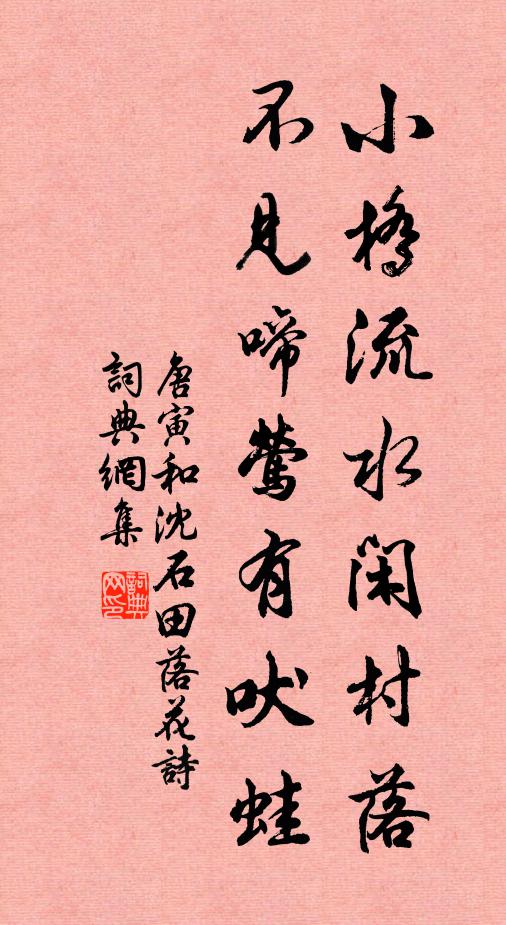 小橋流水閑村落
不見啼鶯有吠蛙
唐寅和沈石田落花詩
詞典網集
詞典网印